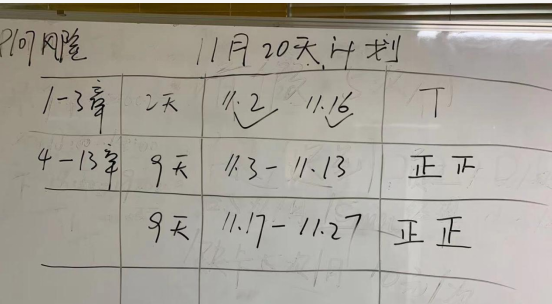 P107风险 11月20天计划
1-3章 2天 11.2 11.16 丅
4-13章 9天 11.3-11.13 正正
9天 11.17-11.27 正正